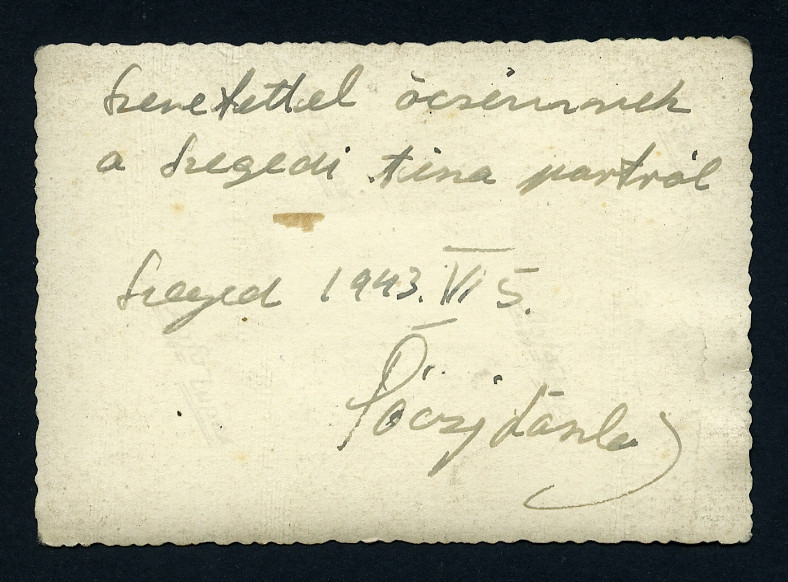 Szeretettel öcsémnek
a Szegedi tisza partról
Szeged 1943. VI 5.
Póczj László